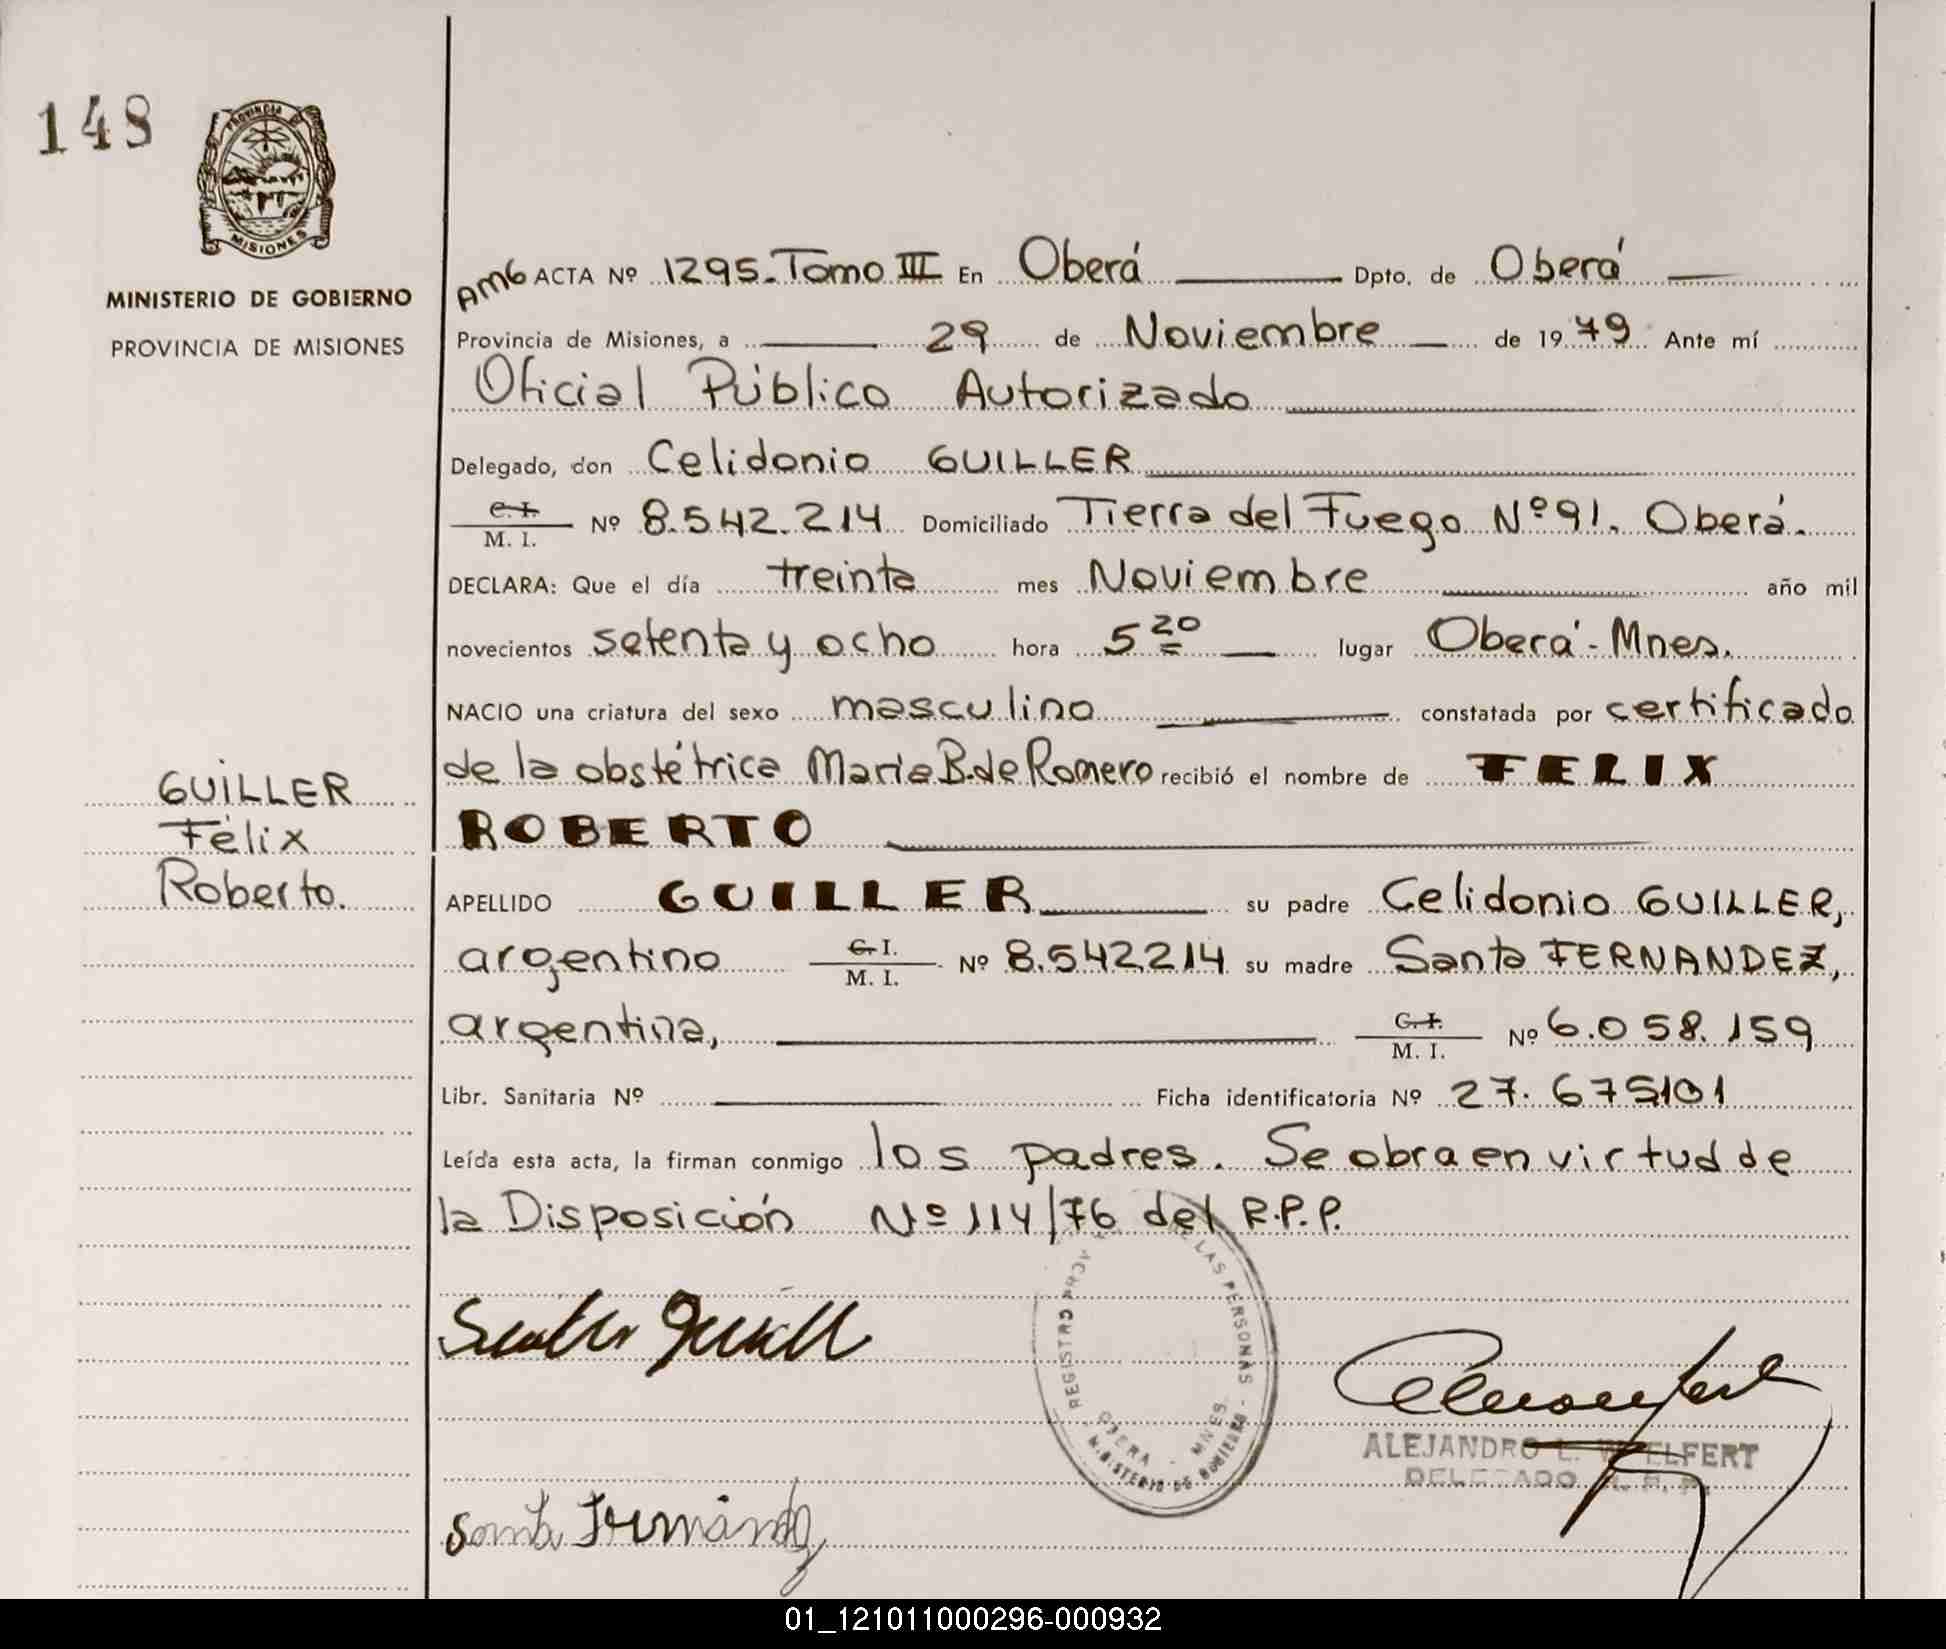 148
PROVINCIA DE
MISIONES
MINISTERIO DE GOBIERNO
PROVINCIA DE MISIONES
AMG ACTA Nº 1295. Tomo III En Oberá Dpto. de Oberá
Provincia de Misiones, a 29 de Noviembre de 1979 Ante mí
Oficial Público Autorizado
Delegado, don Celidonio GUILLER
C.I. / M. I. Nº 8.542.214 Domiciliado Tierra del Fuego Nº 91. Oberá.
DECLARA: Que el día treinta mes Noviembre año mil
novecientos setenta y ocho hora 5 20 lugar Oberá - Mnes.
NACIO una criatura del sexo masculino constatada por certificado
de la obstétrica María B. de Romero recibió el nombre de FELIX
ROBERTO
GUILLER
Félix
Roberto.
APELLIDO GUILLER su padre Celidonio GUILLER,
argentino C.I. / M. I. Nº 8.542214 su madre Santa FERNANDEZ,
argentina, C.I. / M. I. Nº 6.058.159
Libr. Sanitaria Nº Ficha identificatoria Nº 27.675101
Leída esta acta, la firman conmigo los padres. Se obra en virtud de
la Disposición Nº 114/76 del R.P.P.
REGISTRO PROV DE LAS PERSONAS
OBERA - MNES.
MINISTERIO DE GOBIERNO
ALEJANDRO L. WOELFERT
DELEGADO R. P. P.
Santa Fernández
01_121011000296-000932